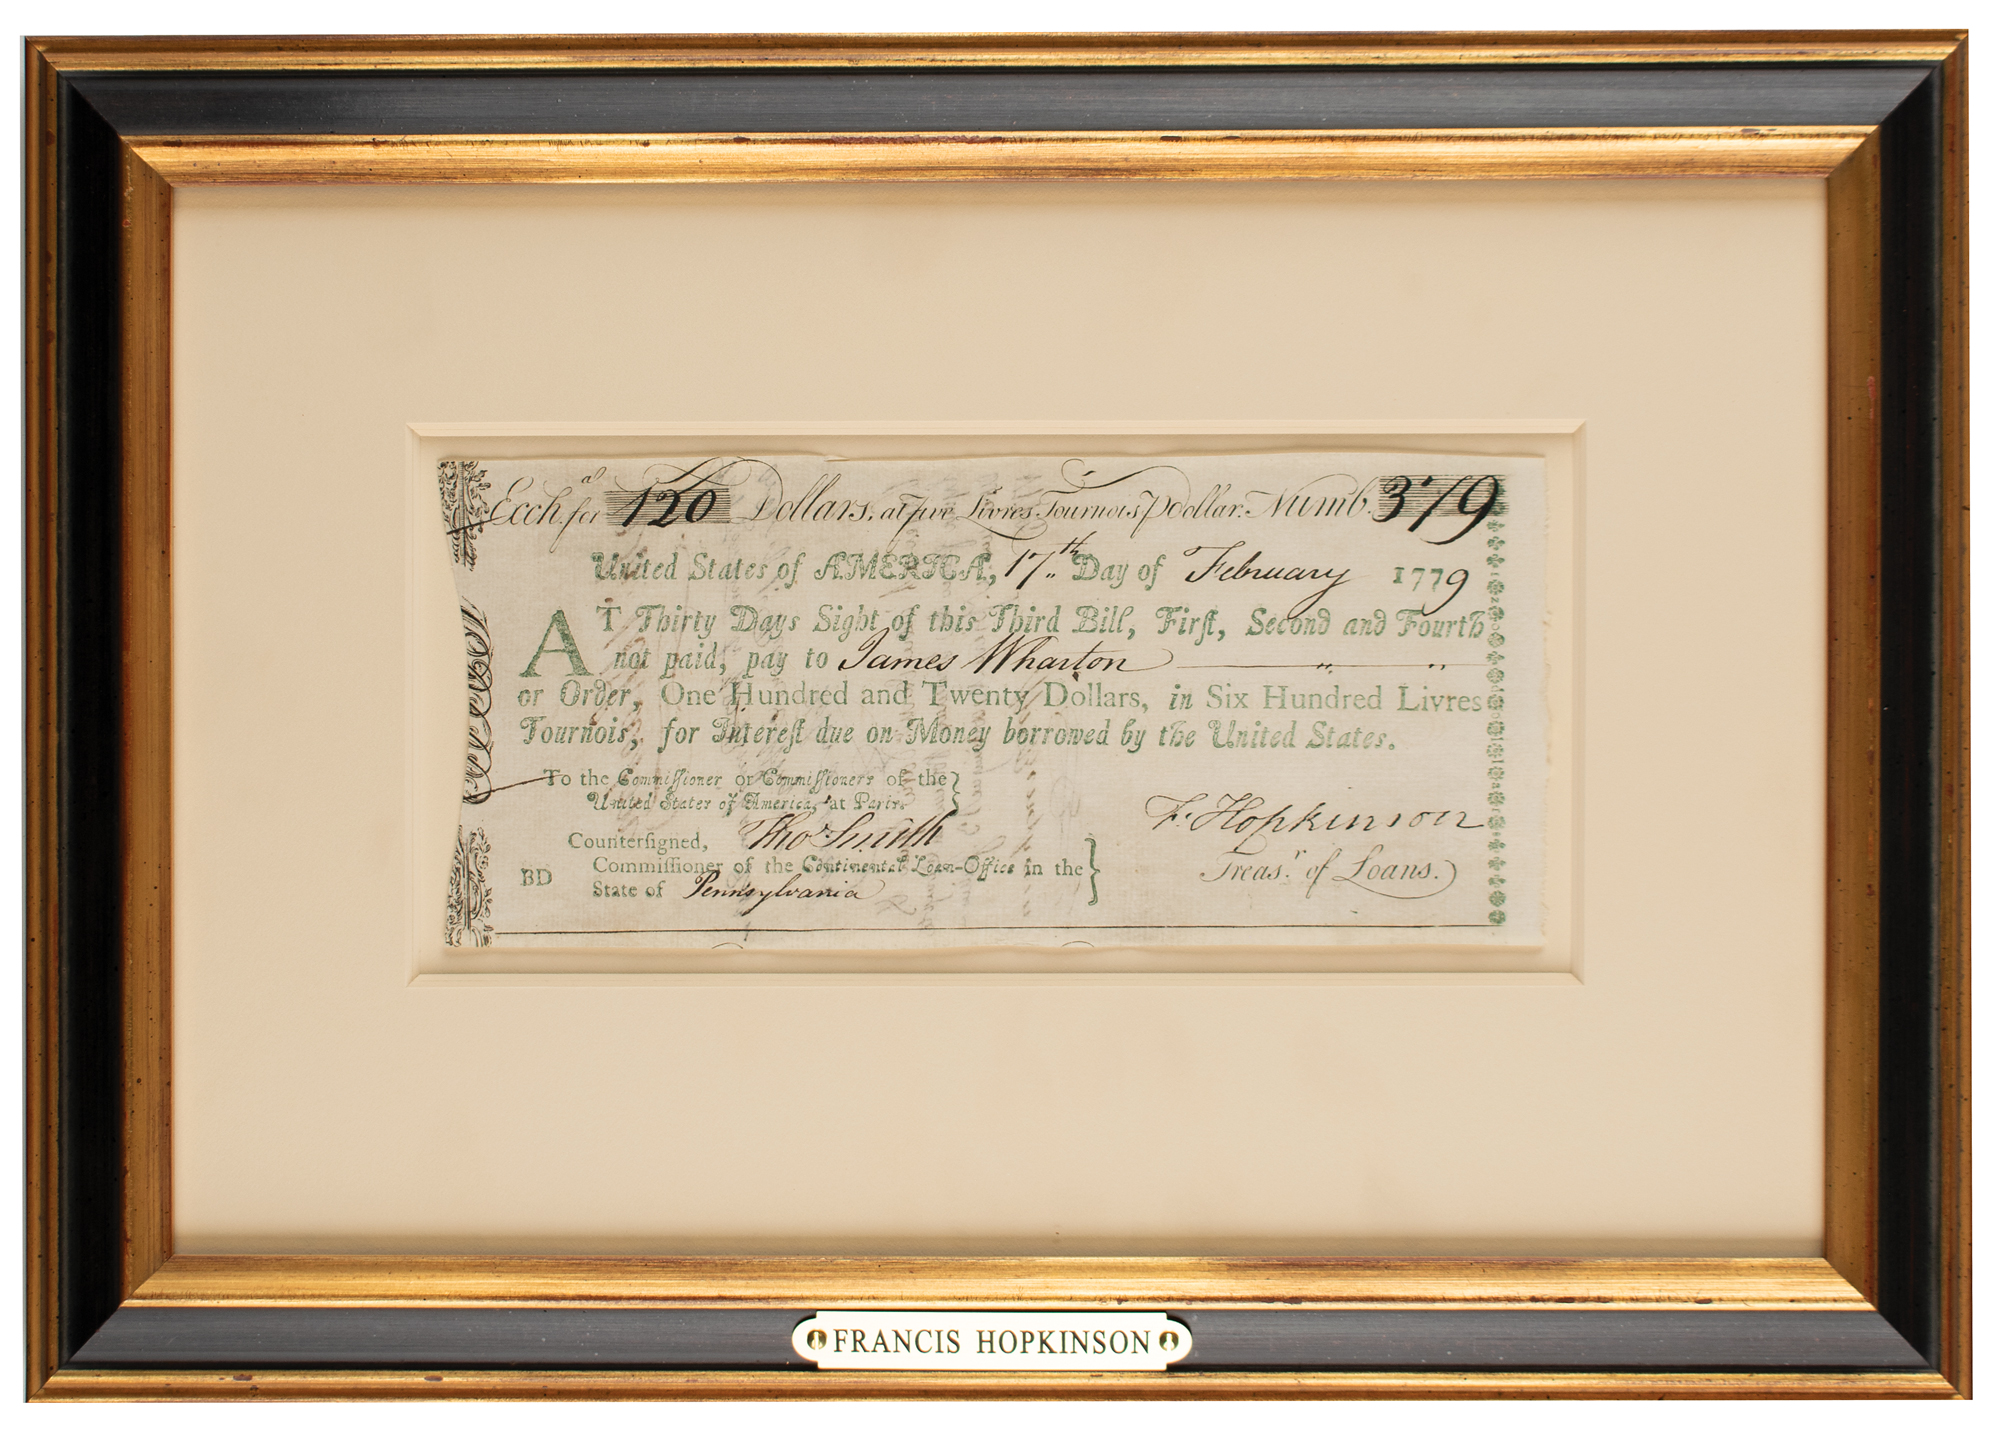 Excha for 120 Dollars, at five Livres Tournois P dollar. Numb. 379
United States of AMERICA, 17th Day of February 1779
AT Thirty Days Sight of this Third Bill, Firſt, Second and Fourth
not paid, pay to James Wharton
or Order, One Hundred and Twenty Dollars, in Six Hundred Livres
Tournois, for Intereſt due on Money borrowed by the United States.
To the Commiſſioner or Commiſſioners of the
United States of America, at Paris.
F. Hopkinson
Counterſigned, Thos Smith
Treasr. of Loans.
Commiſſioner of the Continental Loan-Office in the
BD
State of Pennsylvania
FRANCIS HOPKINSON